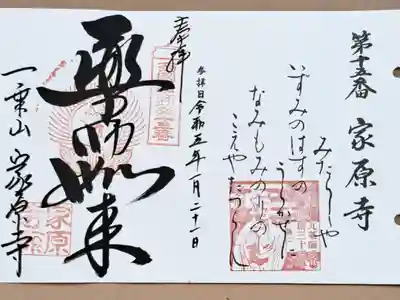 第十五番 家原寺
みたらしや
いずみのはすの
うらかぜに
なみもみのりの
こえやたつらし
参拝日令和五年一月二十一日
奉拝
薬師如来
一乗山 家原寺